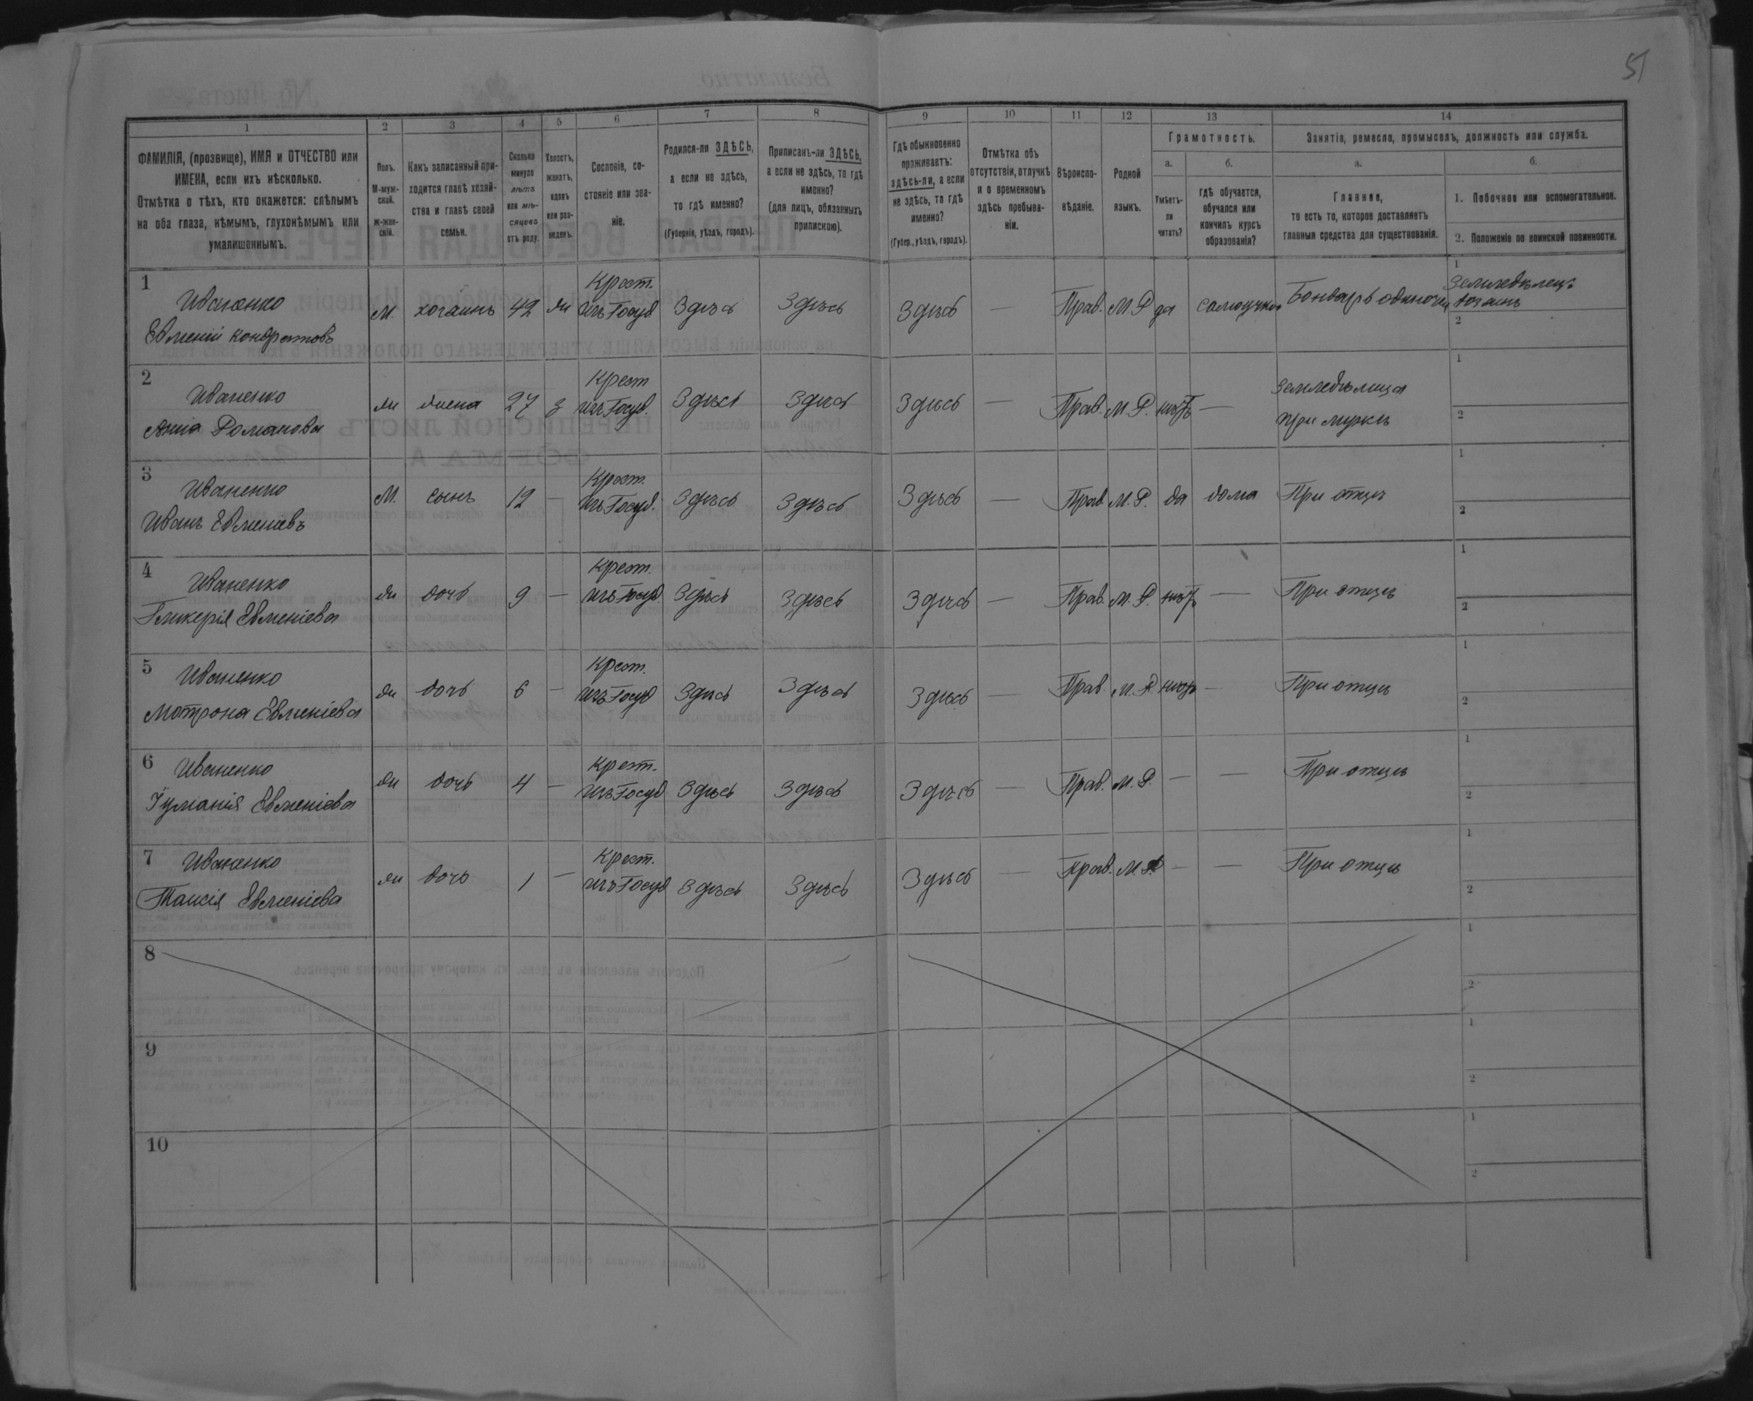 51
1 2 3 4 5 6 7 8 9 10 11 12 13 14
ФАМИЛІЯ, (прозвище), ИМЯ и ОТЧЕСТВО или
ИМЕНА, если ихъ нѣсколько.
Отмѣтка о тѣхъ, кто окажется: слѣпымъ
на оба глаза, нѣмымъ, глухонѣмымъ или
умалишеннымъ.
Полъ.
М-муж-
ской.
ж-жен-
скій.
Какъ записанный при-
ходится главѣ хозяй-
ства и главѣ своей
семьи.
Сколько
минуло
лѣтъ
или мѣ-
сяцевъ
отъ роду.
Холостъ,
женатъ,
вдовъ
или раз-
веденъ.
Сословіе, со-
стояніе или зва-
ніе.
Родился-ли ЗДѢСЬ,
а если не здѣсь,
то гдѣ именно?
(Губернія, уѣздъ, городъ).
Приписанъ-ли ЗДѢСЬ,
а если не здѣсь, то гдѣ
именно?
(для лицъ, обязанныхъ
припискою).
Гдѣ обыкновенно
проживаетъ:
здѣсь-ли, а если
не здѣсь, то гдѣ
именно?
(Губер., уѣздъ, городъ).
Отмѣтка объ
отсутствіи, отлучкѣ
и о временномъ
здѣсь пребыва-
ніи.
Вѣроиспо-
вѣданіе.
Родной
языкъ.
Грамотность.
а.
Умѣетъ-
ли
читать?
б.
гдѣ обучается,
обучался или
кончилъ курсъ
образованія?
Занятіе, ремесло, промыселъ, должность или служба.
а.
Главное,
то есть то, которое доставляетъ
главныя средства для существованія.
б.
1. Побочное или вспомогательное.
2. Положеніе по воинской повинности.
1 Иваненко
Евменій Кондратовъ
М хозяинъ 42 ж Крест.
изъ Госуд. Здѣсь Здѣсь Здѣсь — Прав. М.Р. да самоучка Бондарь одиночка
1 Земледѣлецъ
хозяинъ
2
2 Иваненко
Анна Романова
ж жена 27 з Крест
изъ Госуд. Здѣсь Здѣсь Здѣсь Прав. М.Р. нѣтъ —
Земледѣлица
при мужѣ
1
2
3 Иваненко
Иванъ Евменіевъ
М. сынъ 12 — Крест.
изъ Госуд. Здѣсь Здѣсь Здѣсь — Прав. М.Р. да дома При отцѣ
1
2
4 Иваненко
Гликерія Евменіева
ж дочь 9 — Крест.
изъ Госуд Здѣсь Здѣсь Здѣсь — Прав. М.Р. нѣтъ — При отцѣ
1
2
5 Иваненко
Мотрона Евменіева
ж дочь 6 — Крест.
изъ Госуд Здѣсь Здѣсь Здѣсь — Прав. М.Р. нѣтъ — При отцѣ
1
2
6 Иваненко
Іуліанія Евменіева
ж дочь 4 — Крест.
изъ Госуд Здѣсь Здѣсь Здѣсь — Прав. М.Р. — — При отцѣ
1
2
7 Иваненко
Таисія Евменіева
ж дочь 1 — Крест.
изъ Госуд Здѣсь Здѣсь Здѣсь — Прав. М.Р. — — При отцѣ
1
2
8
1
2
9
1
2
10
1
2